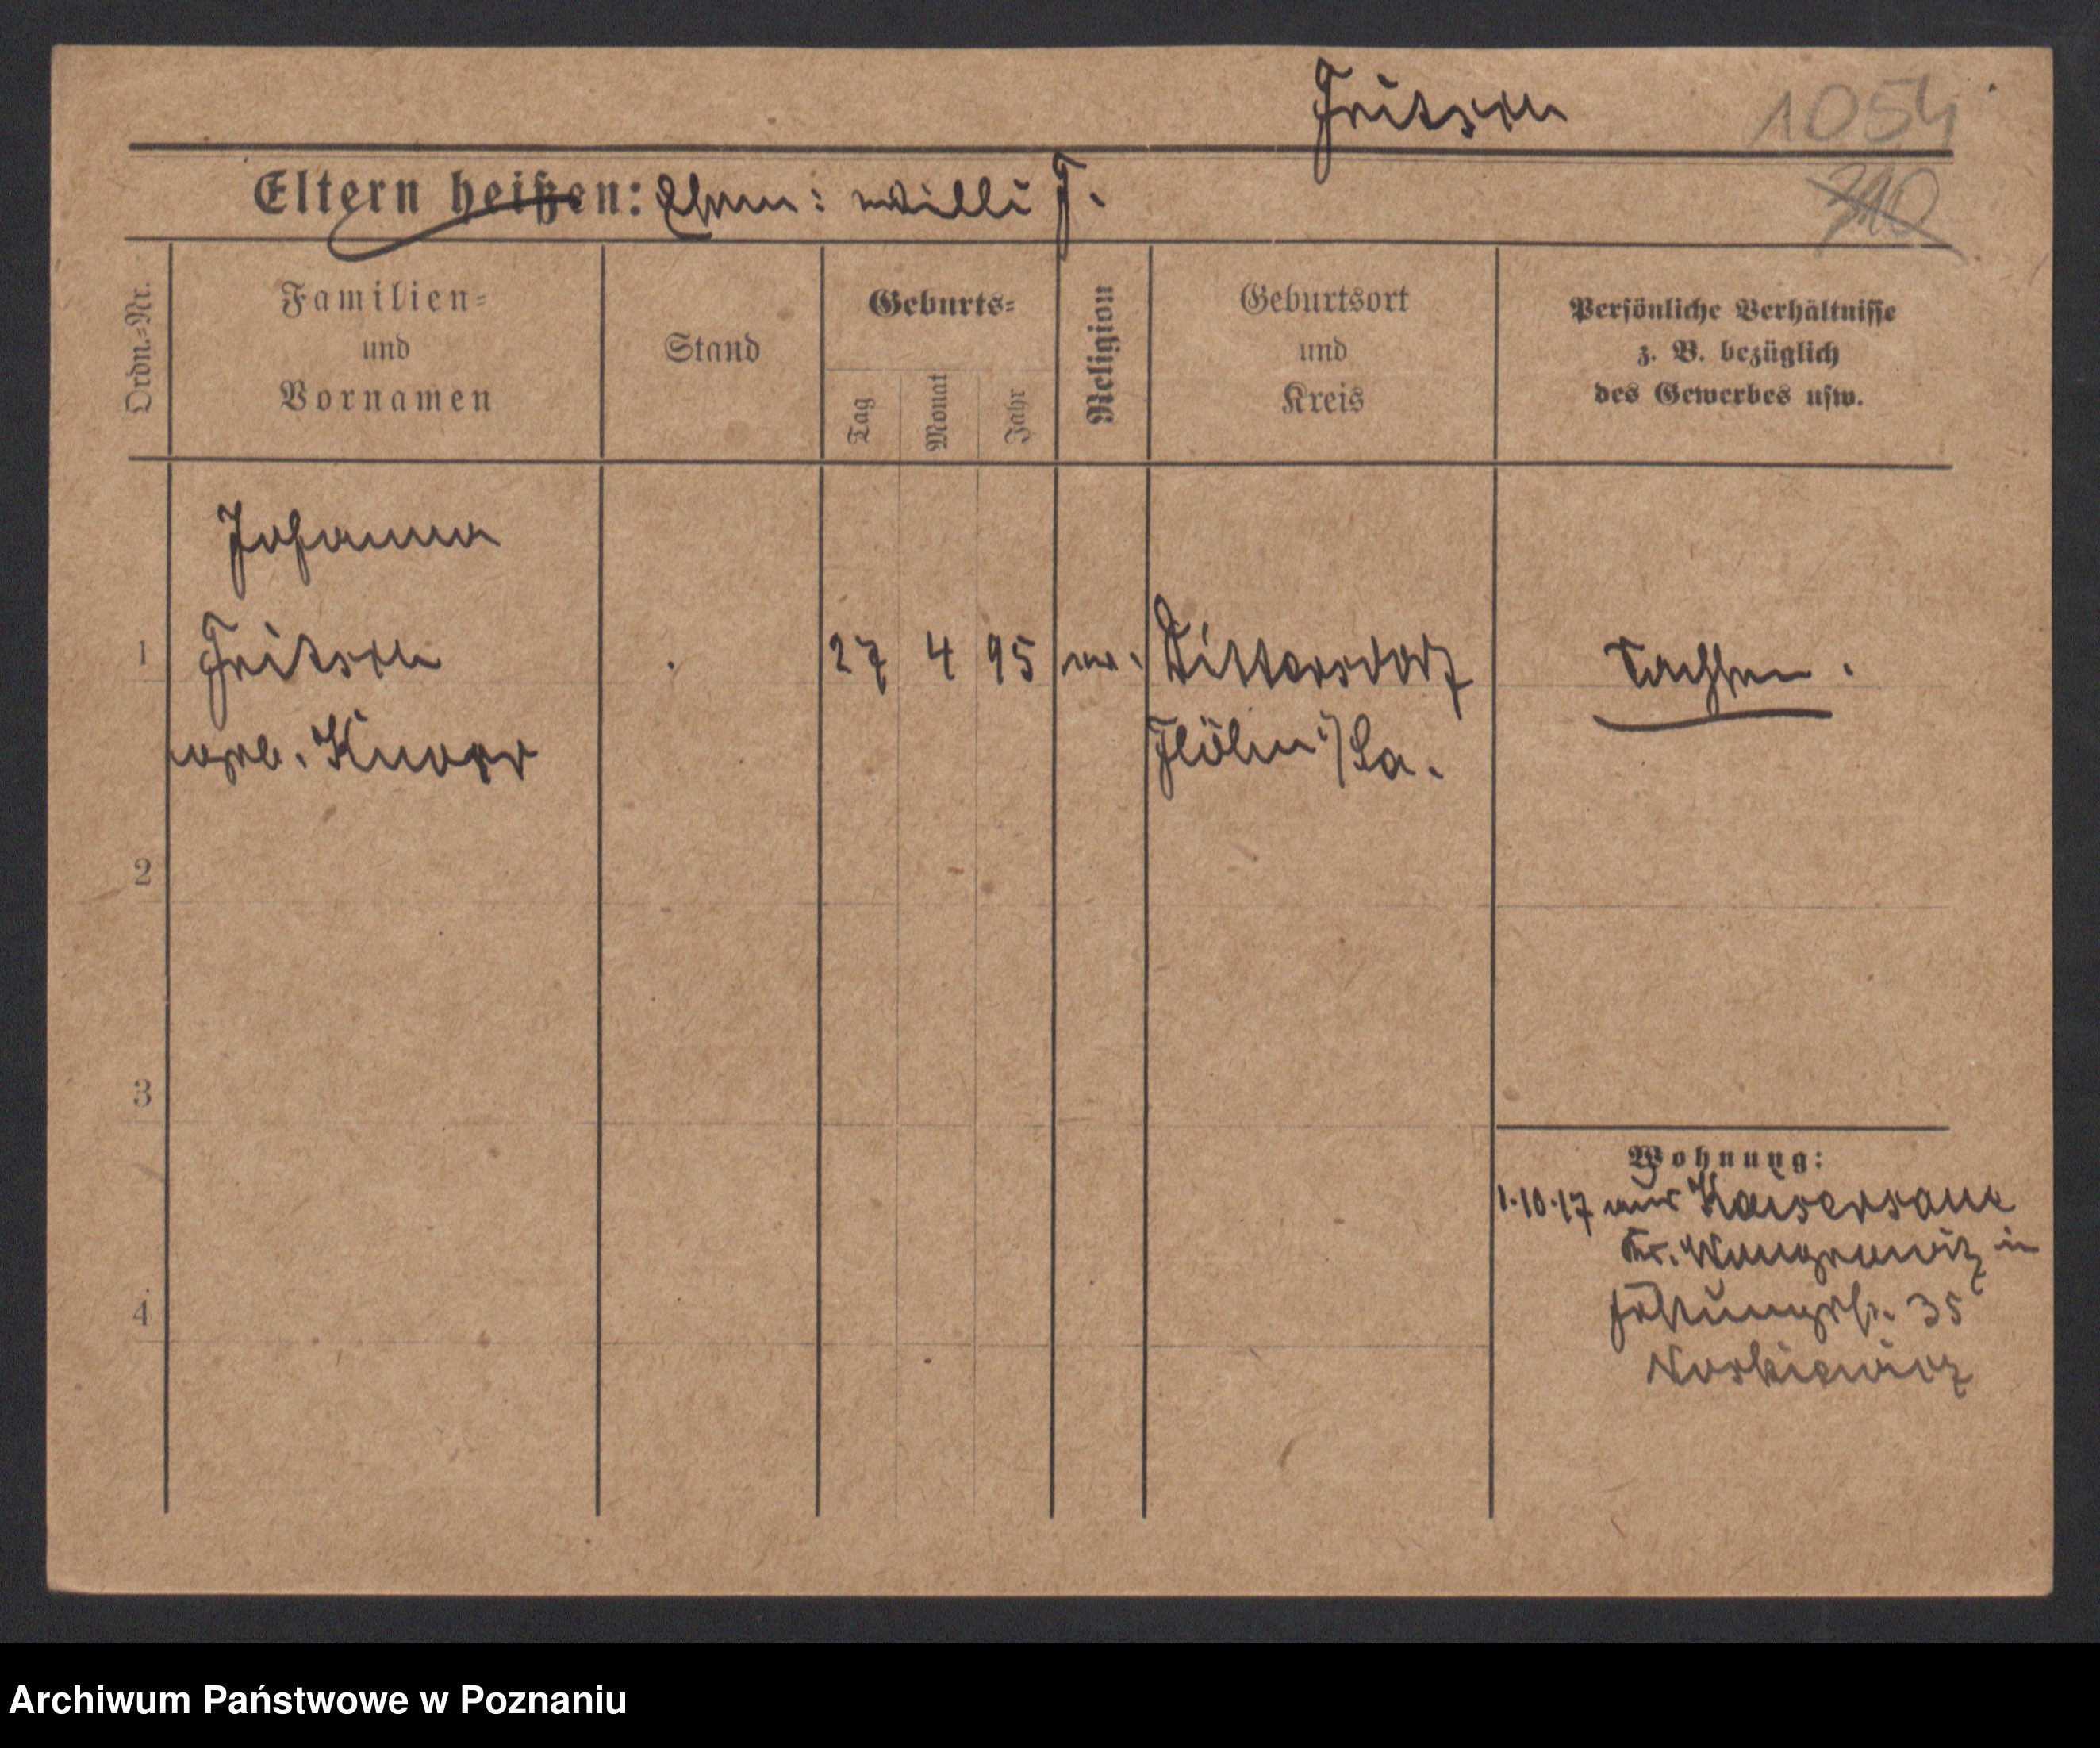 Fritsch
1054
710
Eltern heißen: Ehem: Willi F.
Ordn.-Nr.
Familien-
und
Vornamen
Stand
Geburts-
Tag
Monat
Jahr
Religion
Geburtsort
und
Kreis
Persönliche Verhältnisse
z. B. bezüglich
des Gewerbes usw.
Johanna
1 Fritsch 27 4 95 ev. Dittersdorf Sachsen.
geb. Knorr Flöha i/Sa.
2
3
4
Wohnung:
1.10.17 aus Kaisersaue
Kr. Wongrowitz in
35
Archiwum Państwowe w Poznaniu